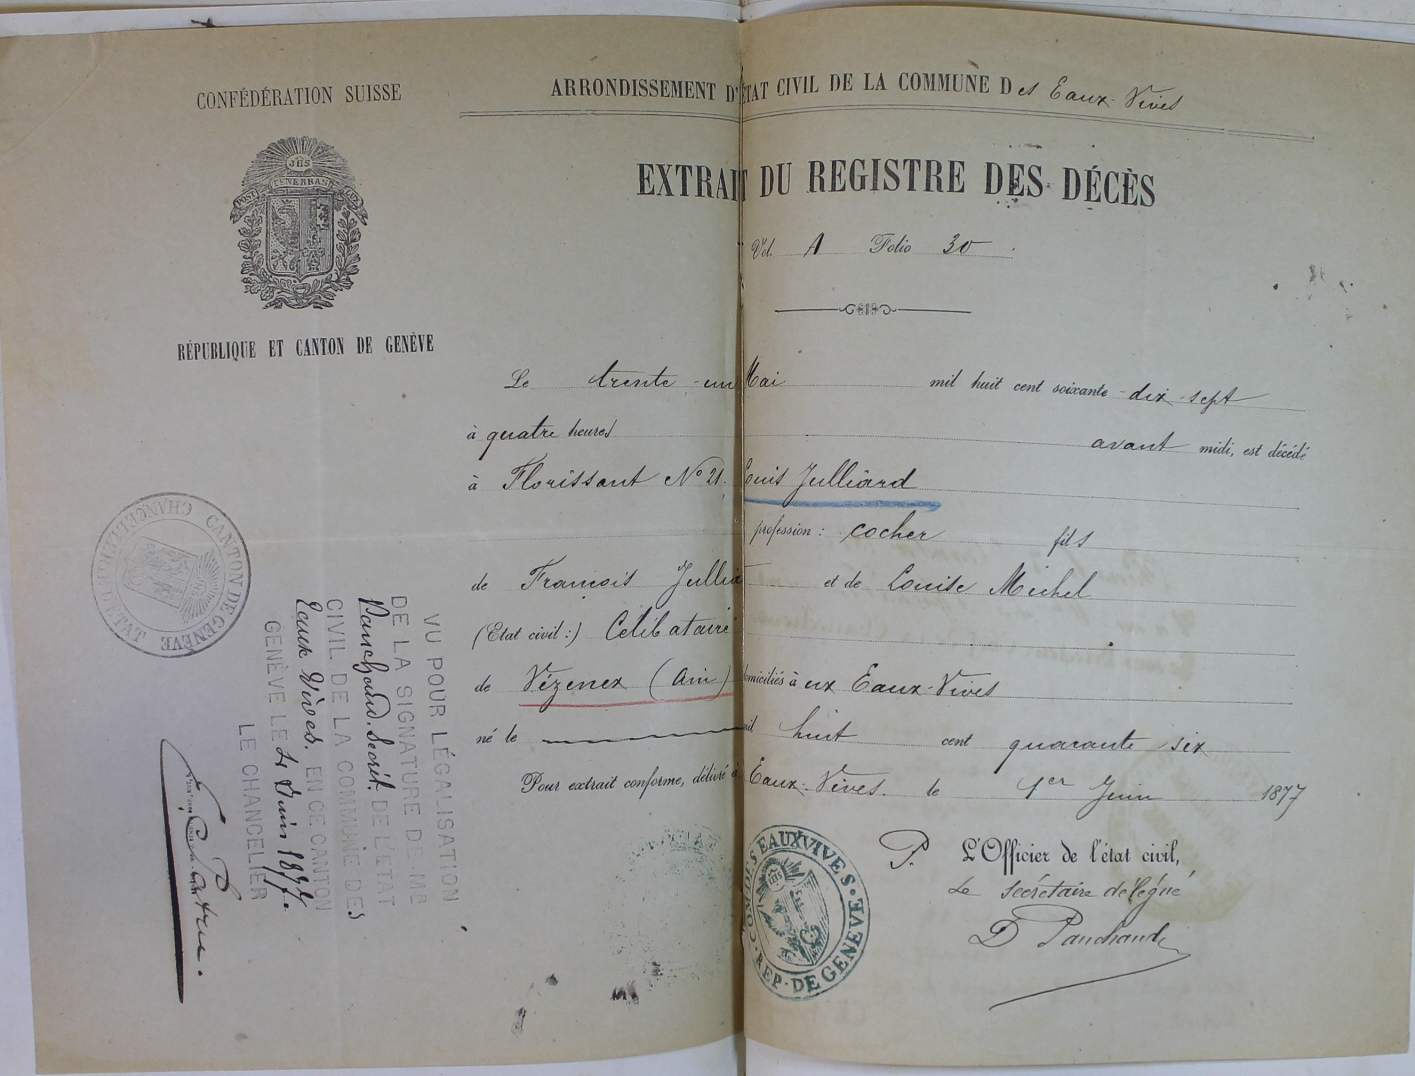 CONFÉDÉRATION SUISSE
JHS
POST TENEBRAS LUX
RÉPUBLIQUE ET CANTON DE GENÈVE
ARRONDISSEMENT D'ÉTAT CIVIL DE LA COMMUNE Des Eaux-Vives
EXTRAIT DU REGISTRE DES DÉCÈS
Vol. A Folio 30.
Le trente-un Mai mil huit cent soixante-dix-sept
à quatre heures avant midi, est décédé
à Florissant No 21. Louis Julliard
profession: cocher fils
de François Jullia et de Louise Michel
(Etat civil:) Célibataire
de Vézenex (Ain) domiciliés à ux Eaux-Vives
né le mil huit cent quarante six
Pour extrait conforme, délivré à Eaux-Vives. le 1er Juin 1877
P. L'Officier de l'état civil,
Le secrétaire délégué
D Panchaud
COM. DES EAUX VIVES. REP. DE GENEVE
CHANCELLERIE D'ETAT CANTON DE GENÈVE
VU POUR LÉGALISATION
DE LA SIGNATURE DE MR
Panchaud. Secrét. DE L'ÉTAT
CIVIL DE LA COMMUNE DES
Eaux Vives. EN CE CANTON
GENÈVE LE 2 Juin 1877.
LE CHANCELIER